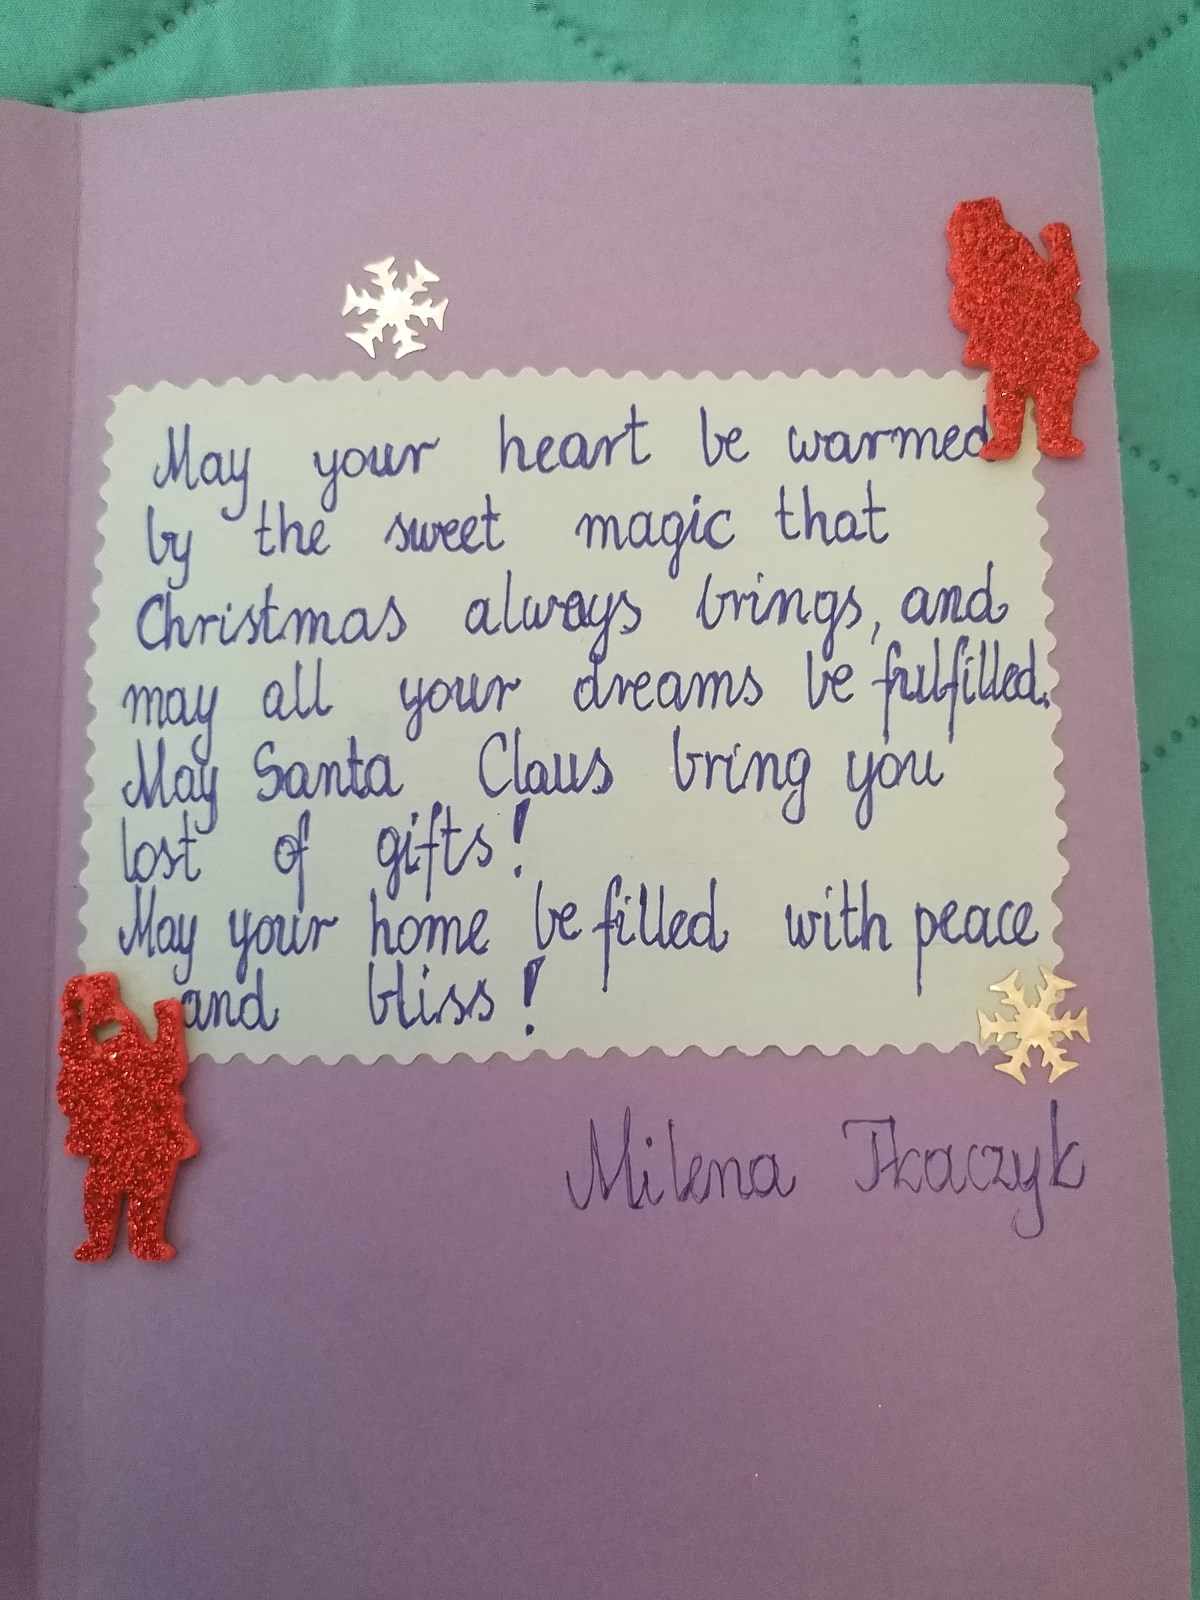 May your heart be warmed
by the sweet magic that
Christmas always brings, and
may all your dreams be fulfilled.
May Santa Claus bring you
lost of gifts!
May your home be filled with peace
and bliss!
Milena Tkaczyk